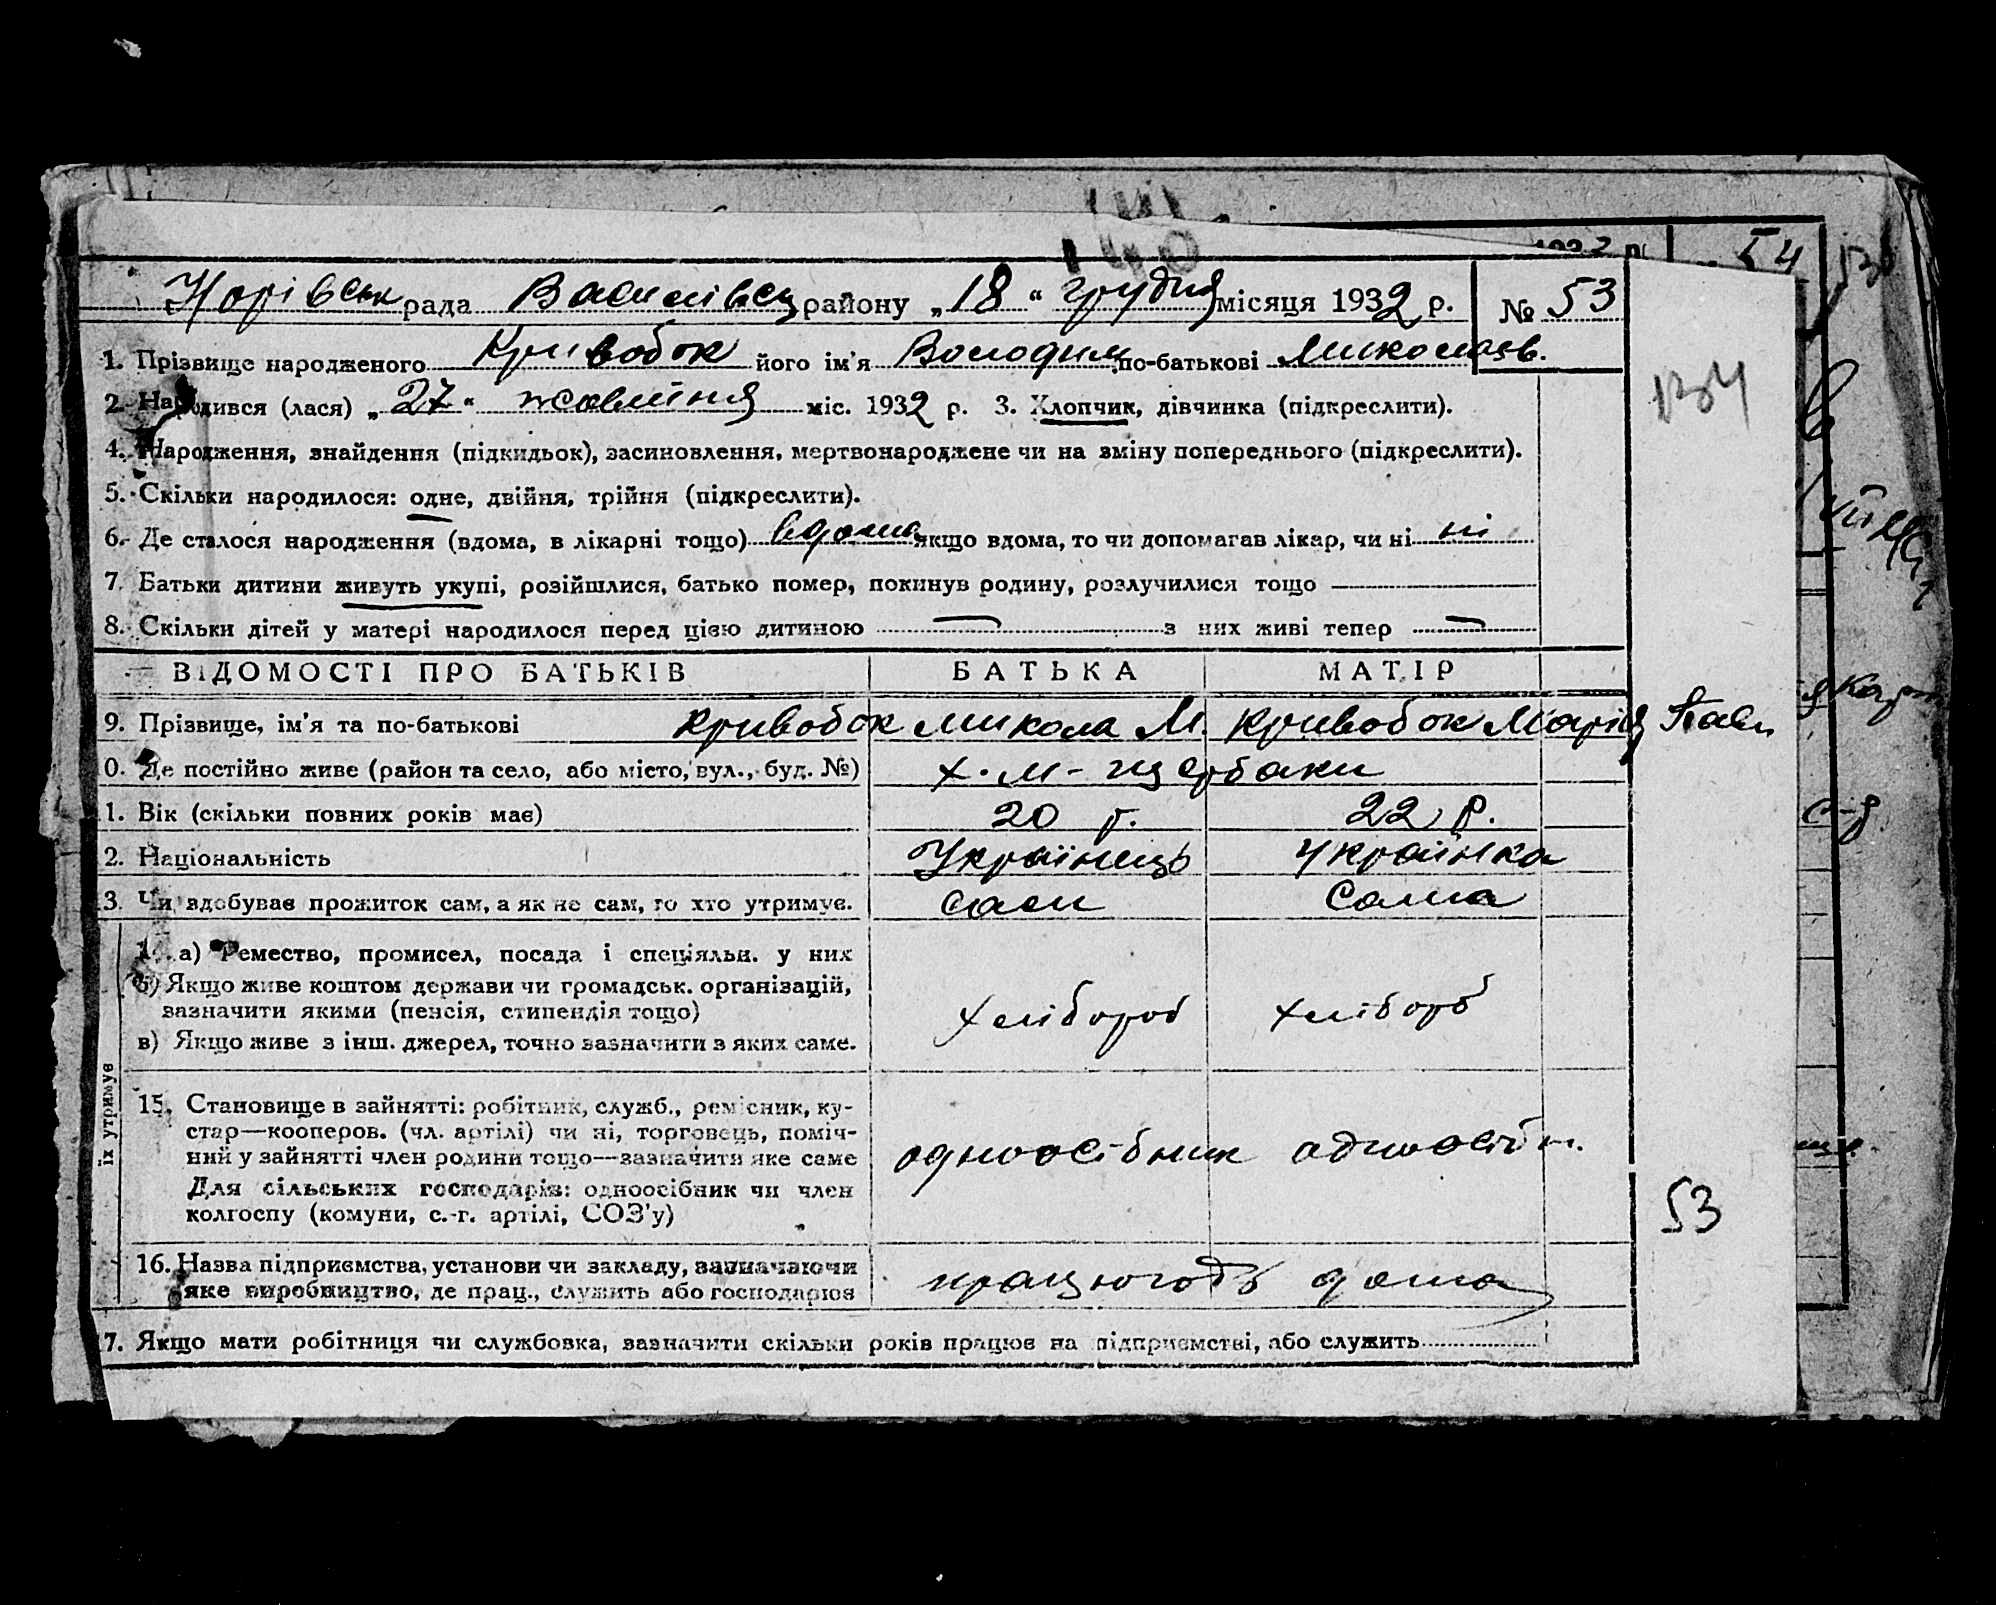 140
1932 р. 54
Норівськ рада Василівец району „18“ грудня місяця 1932 р. № 53
1. Прізвище народженого Кривобок його ім’я Володим. по-батькові Миколаєв.
134
2. Народився (лася) „27“ жовтня міс. 1932 р. 3. Хлопчик, дівчинка (підкреслити).
4. Народження, знайдення (підкидьок), засиновлення, мертвонароджене чи на зміну попереднього (підкреслити).
5. Скільки народилося: одне, двійня, трійня (підкреслити).
6. Де сталося народження (вдома, в лікарні тощо) вдома якщо вдома, то чи допомагав лікар, чи ні ні
7. Батьки дитини живуть укупі, розійшлися, батько помер, покинув родину, розлучилися тощо —
8. Скільки дітей у матері народилося перед цією дитиною — з них живі тепер —
ВІДОМОСТІ ПРО БАТЬКІВ БАТЬКА МАТІР
9. Прізвище, ім’я та по-батькові Кривобок Микола М. Кривобок Марія Павл.
0. Де постійно живе (район та село, або місто, вул., буд. №) х. М-Щербаки
1. Вік (скільки повних років має) 20 р. 22 р.
2. Національність Українець Українка
3. Чи здобуває прожиток сам, а як не сам, то хто утримує. сам сама
1 . а) Ремество, промисел, посада і спеціяльн. у них
б) Якщо живе коштом держави чи громадськ. організацій,
зазначити якими (пенсія, стипендія тощо) хлібороб хлібороб
в) Якщо живе з інш. джерел, точно зазначити з яких саме.
їх утримує
15. Становище в зайнятті: робітник, служб., ремісник, ку-
стар—кооперов. (чл. артілі) чи ні, торговець, поміч-
ний у зайнятті член родини тощо—зазначити яке саме одноосібник одноосібн.
Для сільських господарів: одноосібник чи член
колгоспу (комуни, с.-г. артілі, СОЗ’у)
53
16. Назва підприємства, установи чи закладу, зазначаючи
яке виробництво, де прац., служить або господарює працюють дома
7. Якщо мати робітниця чи службовка, зазначити скільки років працює на підприємстві, або служить